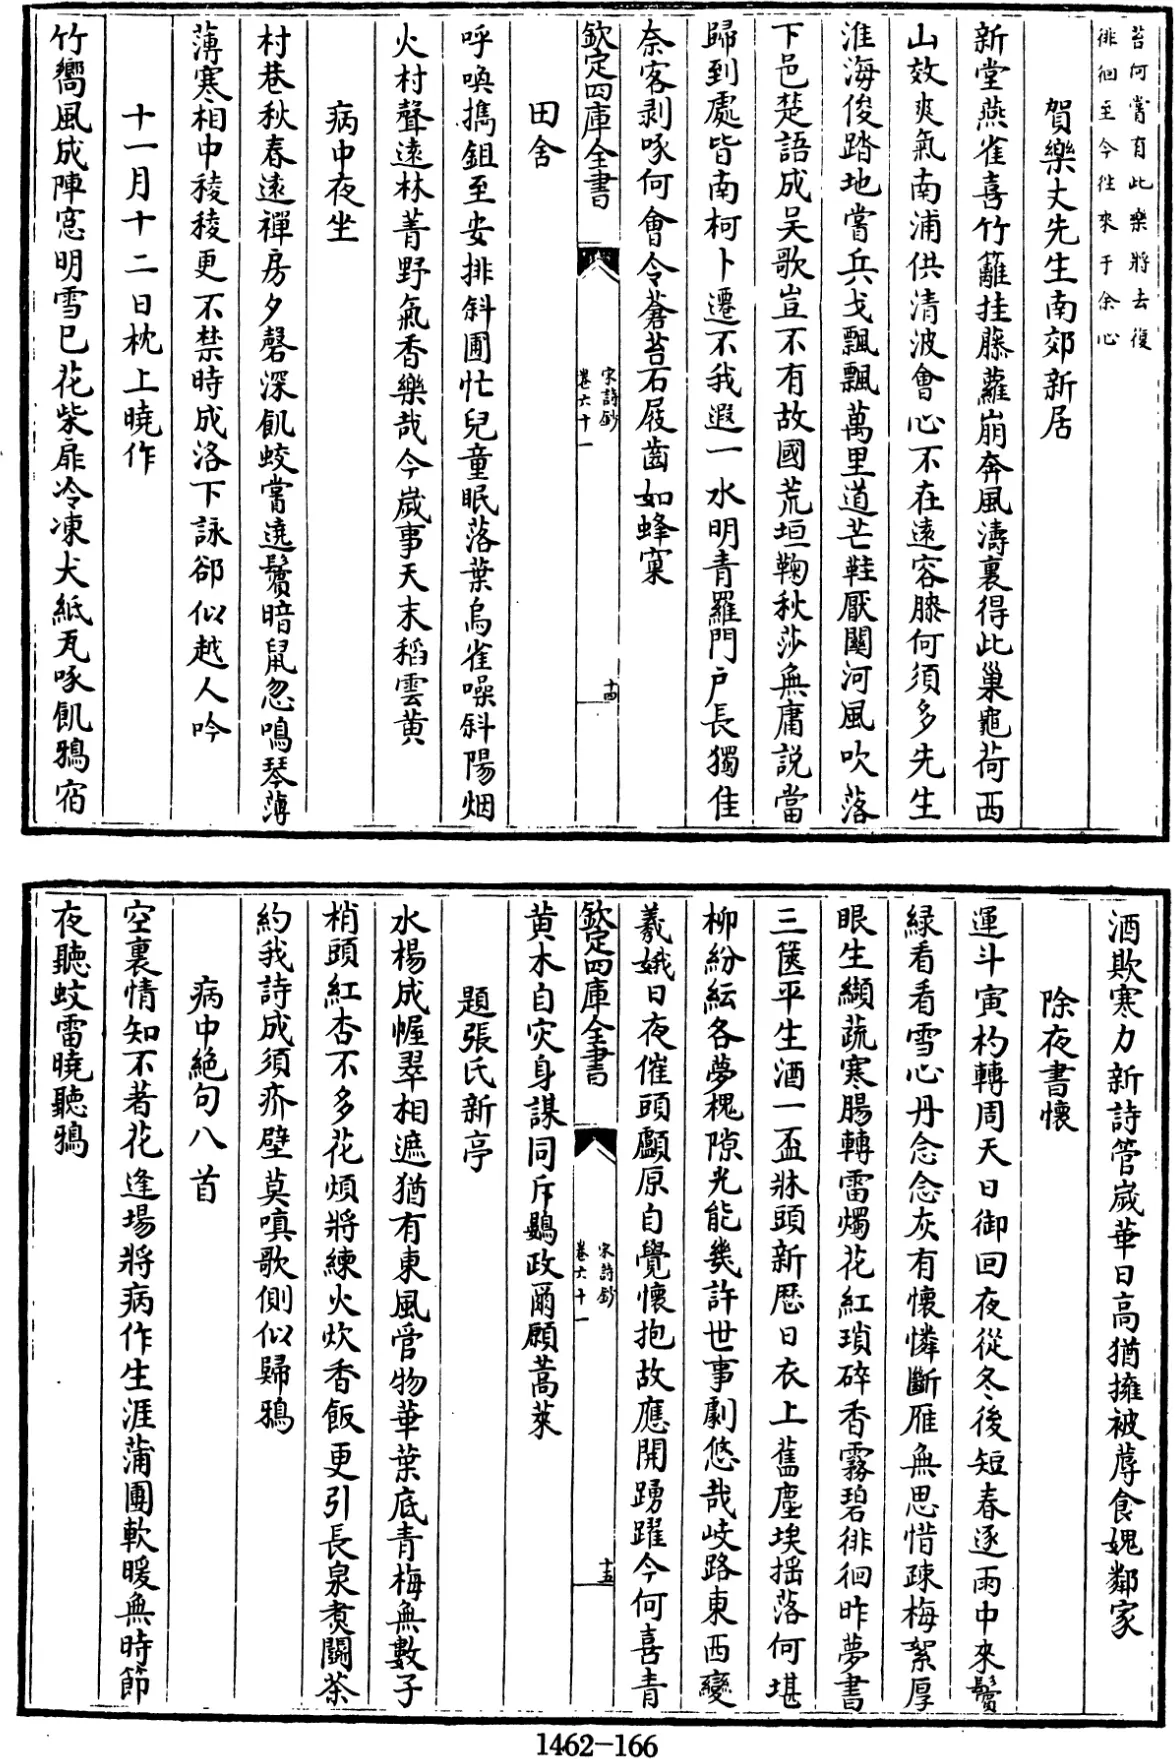 苔何嘗有此樂將去復
徘徊至今往來于余心
賀樂丈先生南郊新居
新堂燕雀喜竹籬挂藤蘿崩奔風濤裏得此巢龜荷西
山效爽氣南浦供清波會心不在遠容膝何須多先生
淮海俊踏地嘗兵戈飄飄萬里道芒鞋厭關河風吹落
下邑楚語成吳歌豈不有故國荒垣鞠秋莎無庸説當
歸到處皆南柯卜遷不我遐一水明青羅門戸長獨佳
奈客剥啄何會令蒼苔石屐齒如蜂窠
欽定四庫全書
宋詩鈔
卷六十一
十四
田舍
呼喚擕鉏至安排斜圃忙兒童眠落葉烏雀噪斜陽烟
火村聲遠林菁野氣香樂哉今嵗事天末稻雲黄
病中夜坐
村巷秋舂遠禪房夕磬深飢蛟嘗遶鬢暗鼠忽鳴琴薄
薄寒相中稜稜更不禁時成洛下詠卻似越人吟
十一月十二日枕上曉作
竹嚮風成陣窓明雪已花柴扉冷凍犬紙瓦啄飢鴉宿
酒欺寒力新詩管嵗華日高猶擁被蓐食媿鄰家
除夜書懷
運斗寅杓轉周天日御回夜從冬後短春逐雨中來鬢
緑看看雪心丹念念灰有懷憐斷雁無思惜疎梅絮厚
眼生纈蔬寒腸轉雷燭花紅瑣碎香霧碧徘徊昨夢書
三篋平生酒一盃牀頭新厯日衣上舊塵埃揺落何堪
柳紛紜各夢槐隙光能幾許世事劇悠哉岐路東西變
羲娥日夜催頭顱原自覺懷抱故應開踴躍今何喜青
欽定四庫全書
宋詩鈔
卷六十一
十五
黄木自灾身謀同斥鷃政爾願蒿萊
題張氏新亭
水楊成幄翠相遮猶有東風管物華葉底青梅無數子
梢頭紅杏不多花煩將練火炊香飯更引長泉煑鬭茶
約我詩成須疥壁莫嗔歌側似歸鴉
病中絶句八首
空裏情知不著花逢場將病作生涯蒲團軟暖無時節
夜聽蚊雷曉聽鴉
1462-166